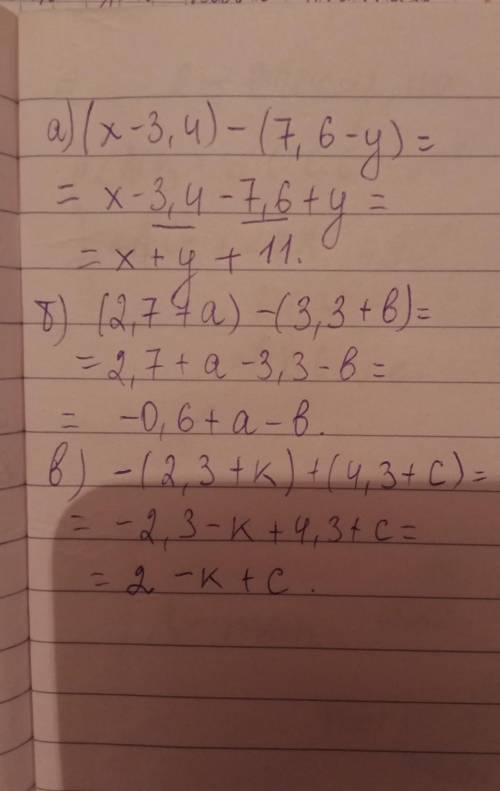 а) (х-3,4)-(7,6-у)=
= х-3,4-7,6+у=
= х+у+11.
б) (2,7+а)-(3,3+в)=
= 2,7+а-3,3-в=
= -0,6+а-в.
в) -(2,3+к)+(4,3+с)=
= -2,3-к+4,3+с=
= 2-к+с.